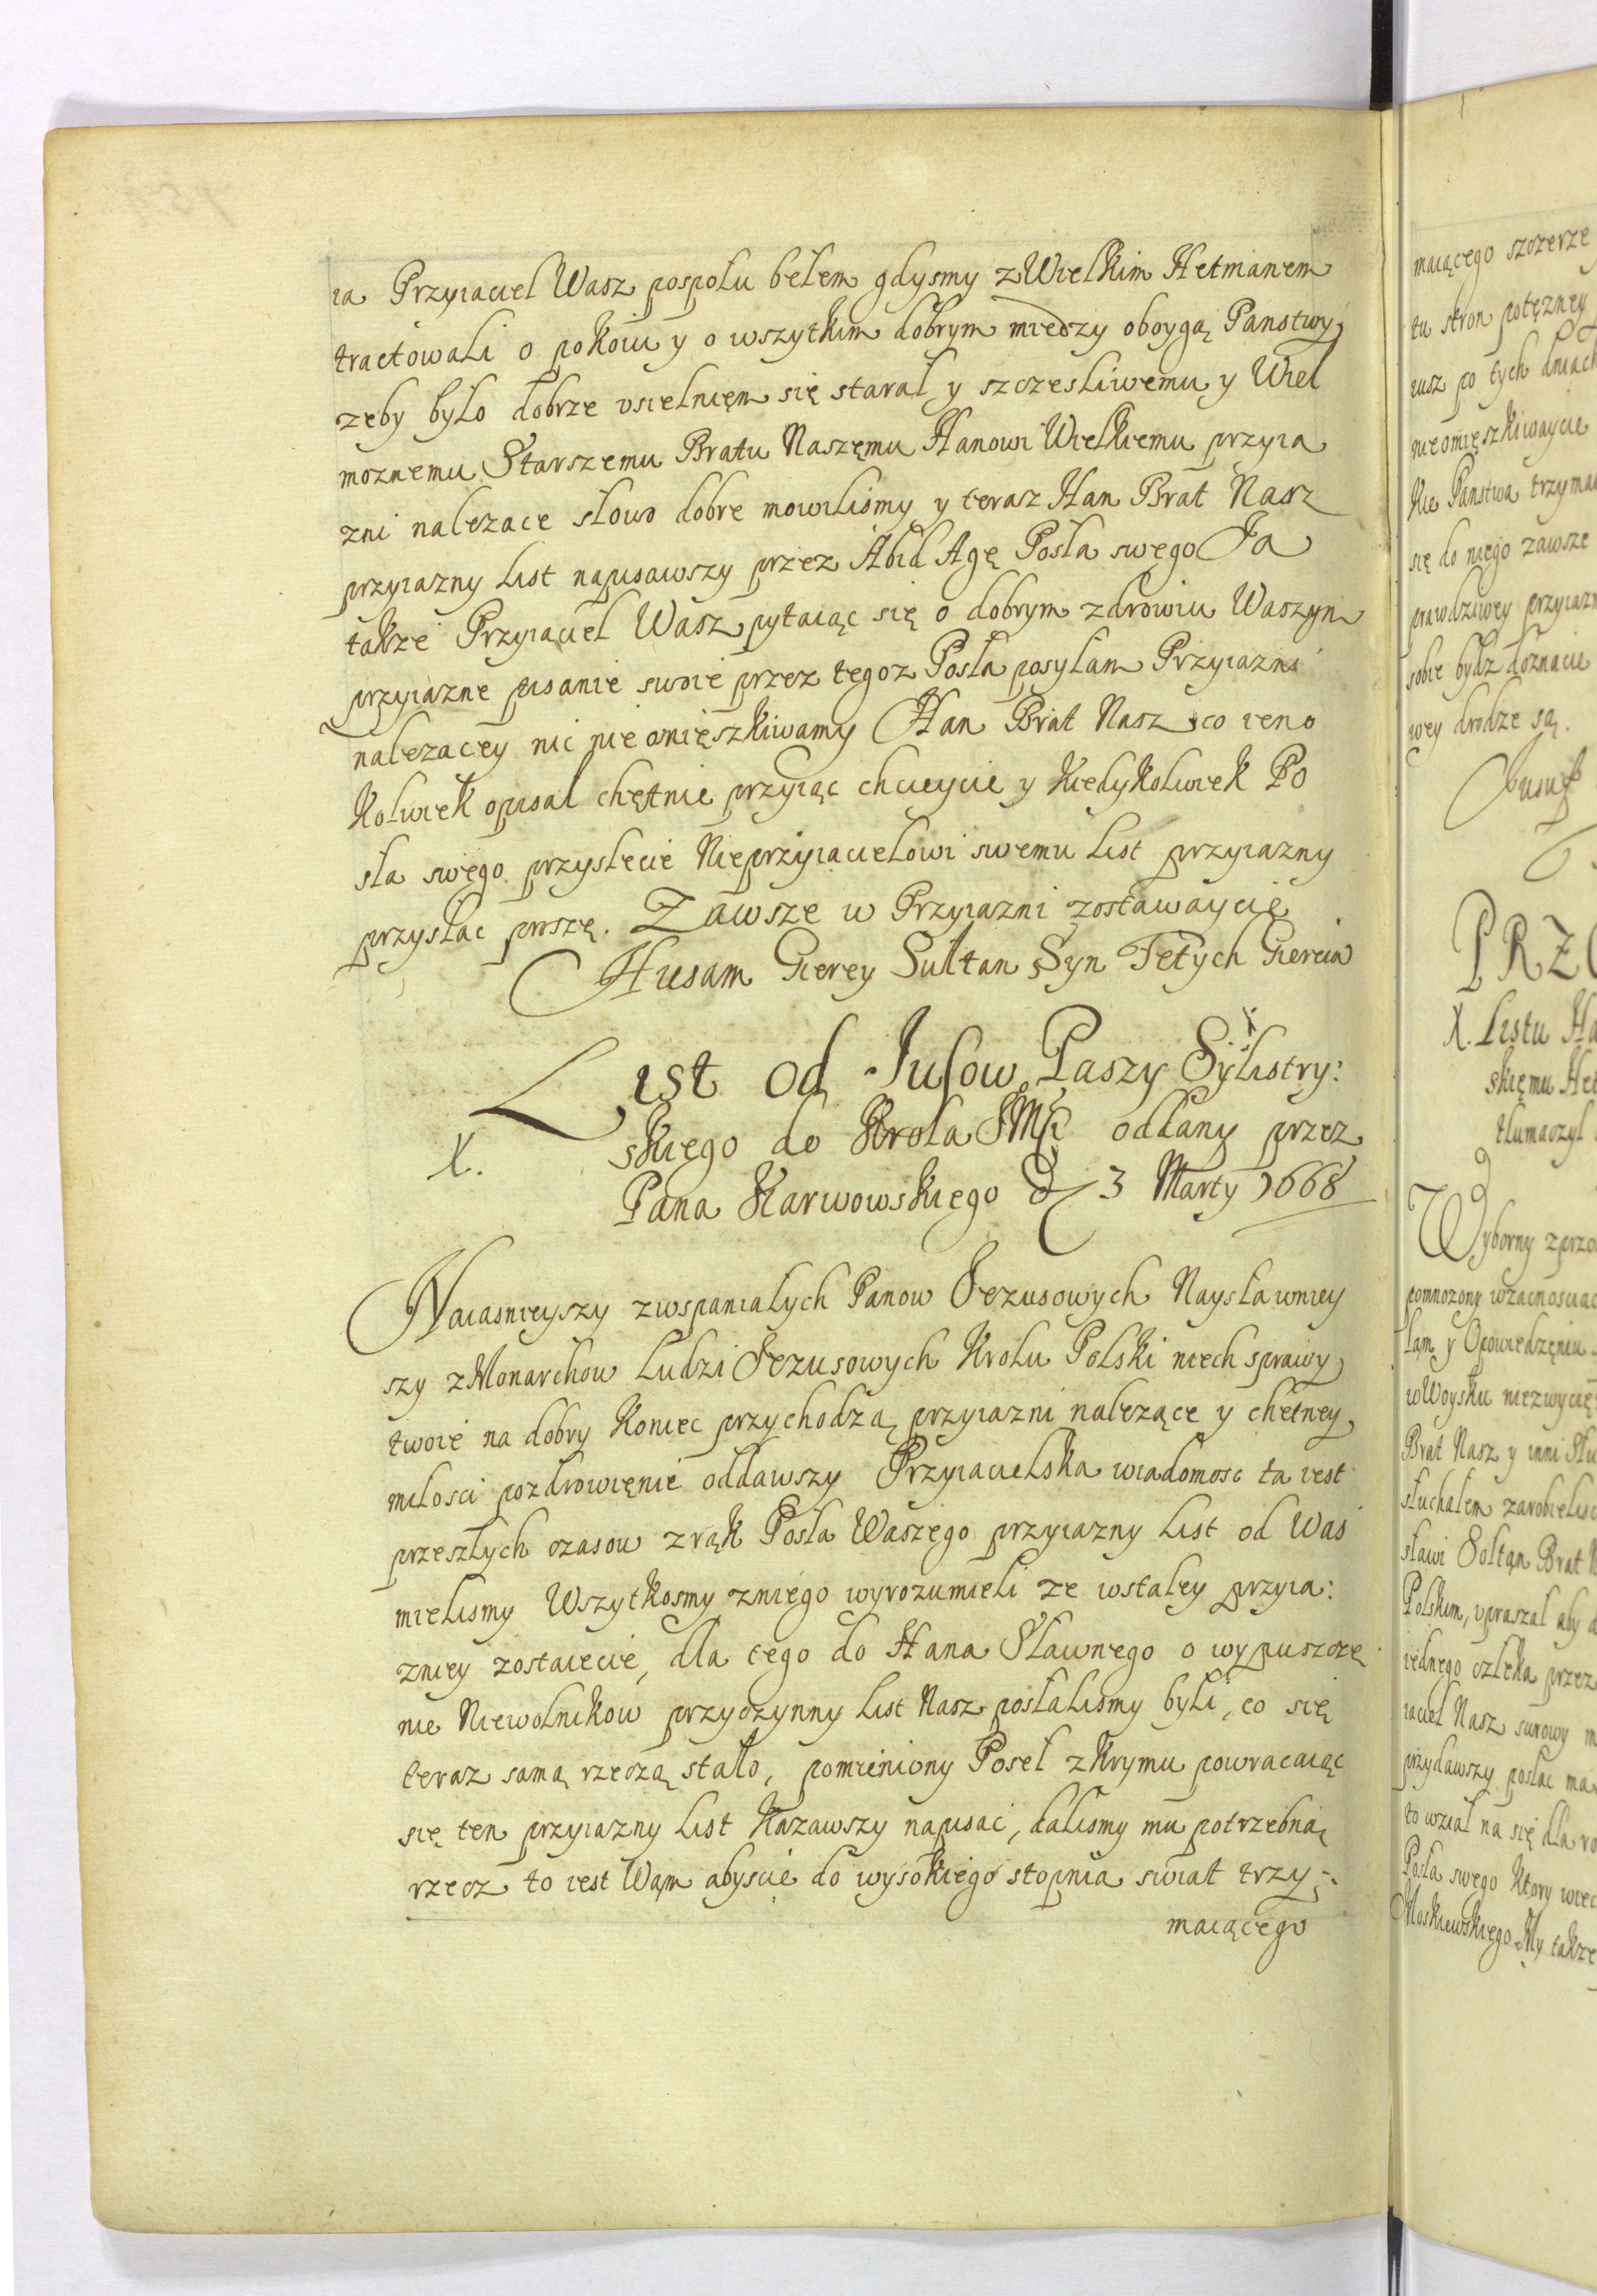 ia Przyiaciel Wasz pospolu belem gdysmy z Wielkim Hetmanem
tractowali o pokoiu y o wszytkim dobrym miedzy oboygą Panstwy
zeby bylo dobrze usielnięm się staral y szczesliwemu y Wiel
moznemu Starszemu Bratu Naszęmu Hanowi Wielkiemu przyia
zni nalezace słowo dobre mowilismy y teraz Han Brat Nasz
przyiazny List napisawszy przez Abid Agę Posla swego Ja
takze Przyiaciel Wasz pytaiąc się o dobrym zdrowiu Waszym
przyiazne pisanie swoie przez tegoz Posla posylam Przyiazni
nalezacey nic nie omięszkiwamy Han Brat Nasz co ieno
kolwiek opisal chętnie przyiąc chcieycie y kiedykolwiek Po
sla swego przyslecie Nieprzyiacielowi swemu List przyiazny
przysłac proszę. Zawsze w Przyiazni zostawaycie
Husam Gierey Sultan Syn Fetych Giereia
List od Jusow Paszy Sylistry:
skiego do Krola JMsci oddany przez
X.
Pana Karwowskiego d 3 Marty 1668
Naiasnieyszy zwspanialych Panow Jezusowych Naysławniey
szy z Monarchow Ludzi Jezusowych Krolu Polski niech sprawy
twoie na dobry koniec przychodzą przyiazni nalezące y chetney
milosci pozdrowięnie oddawszy Przyiacielska wiadomosc ta iest
przeszlych czasow z rąk Posla Waszego przyiazny List od Was
mielismy Wszytkosmy z niego wyrozumieli ze w staley przyia:
zniey zostaiecie, dla tego do Hana Sławnego o wypuszcze
nie Niewolnikow przyczynny List Nasz poslalismy byli, co się
teraz samą rzeczą stało, pomieniony Posel z Krymu powracaiąc
się ten przyiazny List kazawszy napisac, dalismy mu potrzebną
rzecz to iest Wąm abyscie do wysokiego stopnia swiat trzy-:
maiącego
maiącego szczerze
tu stron potęzney
iusz po tych dniach
nieomięszkiwaycie
kie Panstwa trzymai
się do niego zawsze
prawdziwey przyiazn
sobie bydz doznacie
wey drodze są.
Jusuf
PRZ
X. Listu Ha
skięmu Het
tlumaczyl
Wyborny z prze
pomnozony w zacnosciac
łam y Opowiedzęniu
w Woysku niezwycię
Brat Nasz y inni Słu
słuchalem zarobielisc
sławi Soltąn Brat N
Polskim, upraszal aby d
iednego człeka przez
iaciel Nasz surowy m
przydawszy posłac ma
to wzial na się dla ro
Posla swego ktory wiec
Moskiewskiego My takze